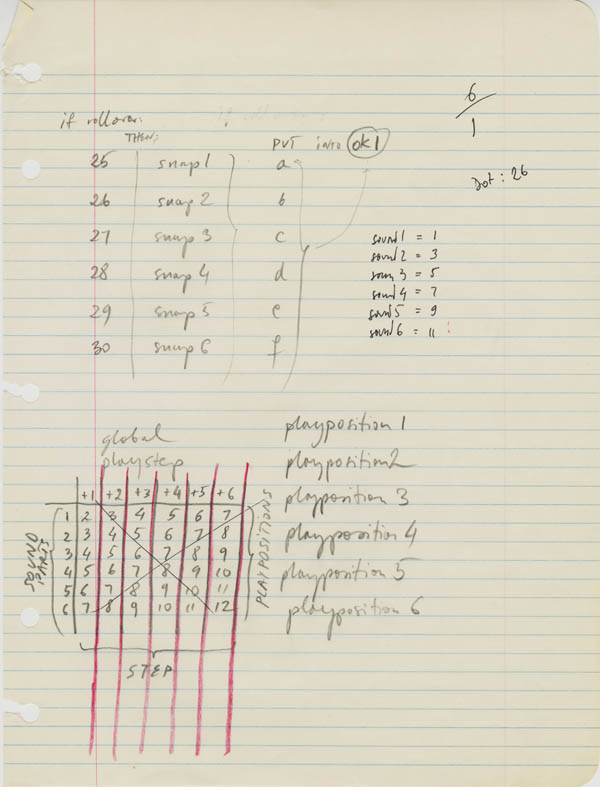 6
1
if rollover:
THEN: PUT INTO ok1
25 snap1 a
Dot: 26
26 snap 2 b
27 snap 3 c
28 snap 4 d
29 snap 5 e
30 snap 6 f
sound1 = 1
sound2 = 3
soun 3 = 5
sound4 = 7
sound5 = 9
sound6 = 11
global
playstep
+1 +2 +3 +4 +5 +6
1 2 3 4 5 6 7
2 3 4 5 6 7 8
3 4 5 6 7 8 9
4 5 6 7 8 9 10
5 6 7 8 9 10 11
6 7 8 9 10 11 12
SOUND
PLAYPOSITIONS
STEP
playposition 1
playposition2
playposition 3
playposition 4
playposition 5
playposition 6